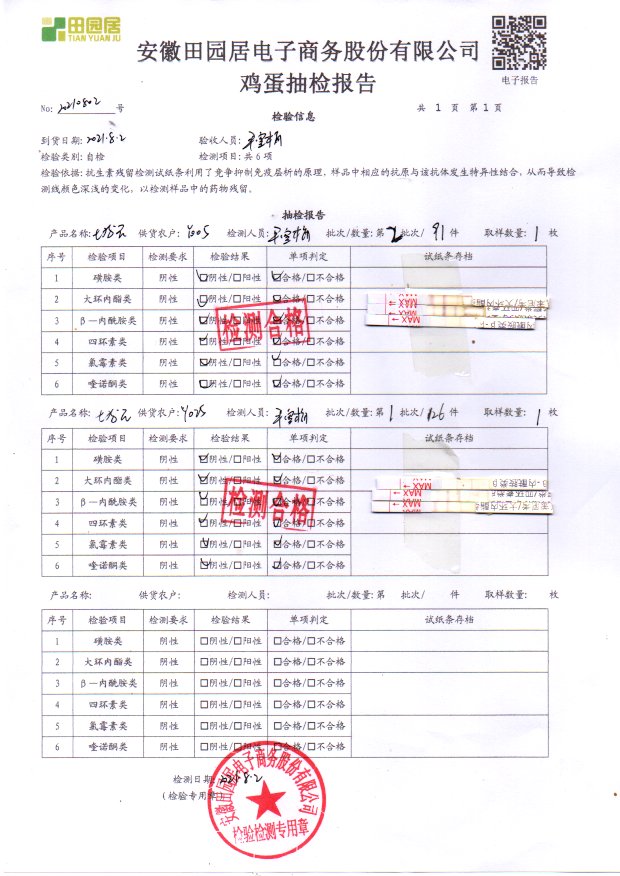 田园居
TIAN YUAN JU
安徽田园居电子商务股份有限公司
鸡蛋抽检报告
电子报告
No: 20210802 号
共 1 页 第 1 页
检验信息
到货日期: 2021.8.2 验收人员:
检验类别: 自检 检测项目: 共 6 项
检验依据: 抗生素残留检测试纸条利用了竞争抑制免疫层析的原理，样品中相应的抗原与该抗体发生特异性结合，从而导致检
测线颜色深浅的变化，以检测样品中的药物残留。
抽检报告
产品名称: 供货农户: Y005 检测人员: 批次/数量: 第 2 批次/ 91 件 取样数量: 1 枚
序号 检验项目 检测要求 检验结果 单项判定 试纸条存档
1 磺胺类 阴性 ☑阴性/□阳性 ☑合格/□不合格
2 大环内酯类 阴性 ☑阴性/□阳性 ☑合格/□不合格
3 β－内酰胺类 阴性 ☑阴性/□阳性 ☑合格/□不合格
4 四环素类 阴性 ☑阴性/□阳性 ☑合格/□不合格
5 氯霉素类 阴性 ☑阴性/□阳性 ☑合格/□不合格
6 喹诺酮类 阴性 ☑阴性/□阳性 ☑合格/□不合格
检测合格
MAX
MAX
产品名称: 供货农户: Y025 检测人员: 批次/数量: 第 1 批次/ 126 件 取样数量: 1 枚
序号 检验项目 检测要求 检验结果 单项判定 试纸条存档
1 磺胺类 阴性 ☑阴性/□阳性 ☑合格/□不合格
2 大环内酯类 阴性 ☑阴性/□阳性 ☑合格/□不合格
3 β－内酰胺类 阴性 ☑阴性/□阳性 ☑合格/□不合格
4 四环素类 阴性 ☑阴性/□阳性 ☑合格/□不合格
5 氯霉素类 阴性 ☑阴性/□阳性 ☑合格/□不合格
6 喹诺酮类 阴性 ☑阴性/□阳性 ☑合格/□不合格
检测合格
MAX
MAX
产品名称: 供货农户: 检测人员: 批次/数量: 第 批次/ 件 取样数量: 枚
序号 检验项目 检测要求 检验结果 单项判定 试纸条存档
1 磺胺类 阴性 □阴性/□阳性 □合格/□不合格
2 大环内酯类 阴性 □阴性/□阳性 □合格/□不合格
3 β－内酰胺类 阴性 □阴性/□阳性 □合格/□不合格
4 四环素类 阴性 □阴性/□阳性 □合格/□不合格
5 氯霉素类 阴性 □阴性/□阳性 □合格/□不合格
6 喹诺酮类 阴性 □阴性/□阳性 □合格/□不合格
检测日期: 2021.8.2
(检验专用章)
安徽田园居电子商务股份有限公司
检验检测专用章